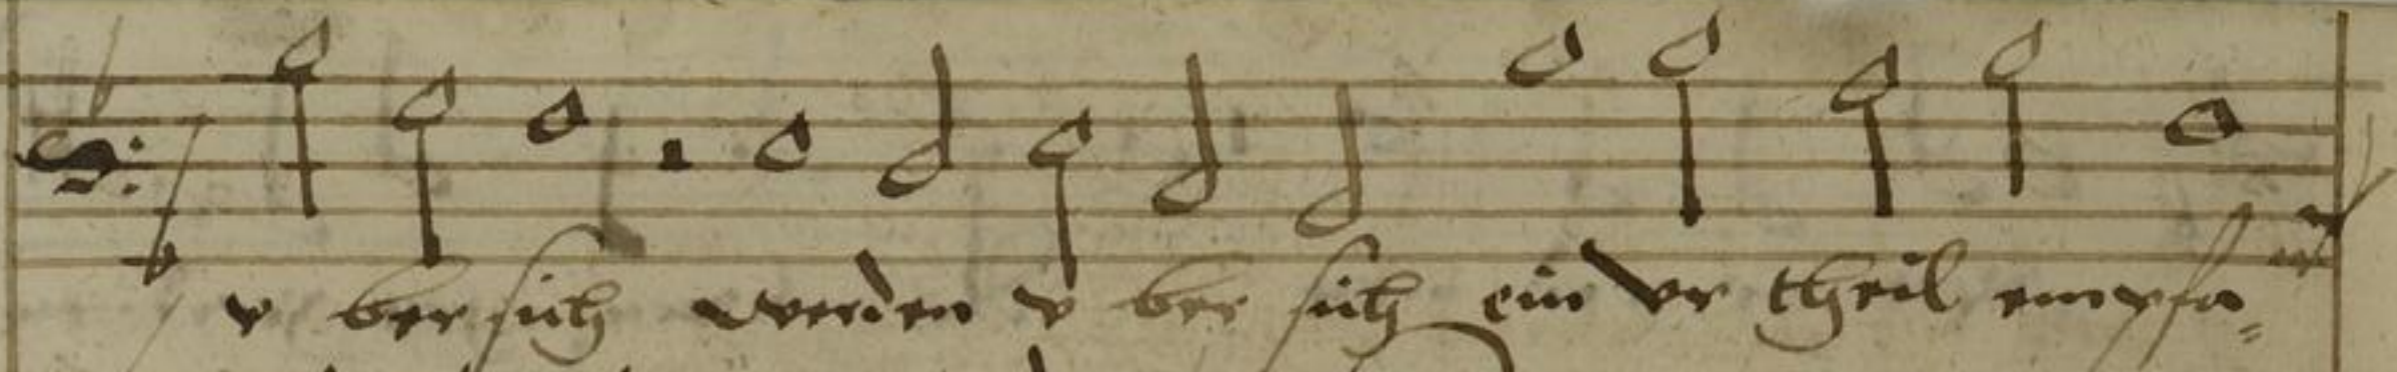 v ber sich werden v ber sich ein vr theil empfa=